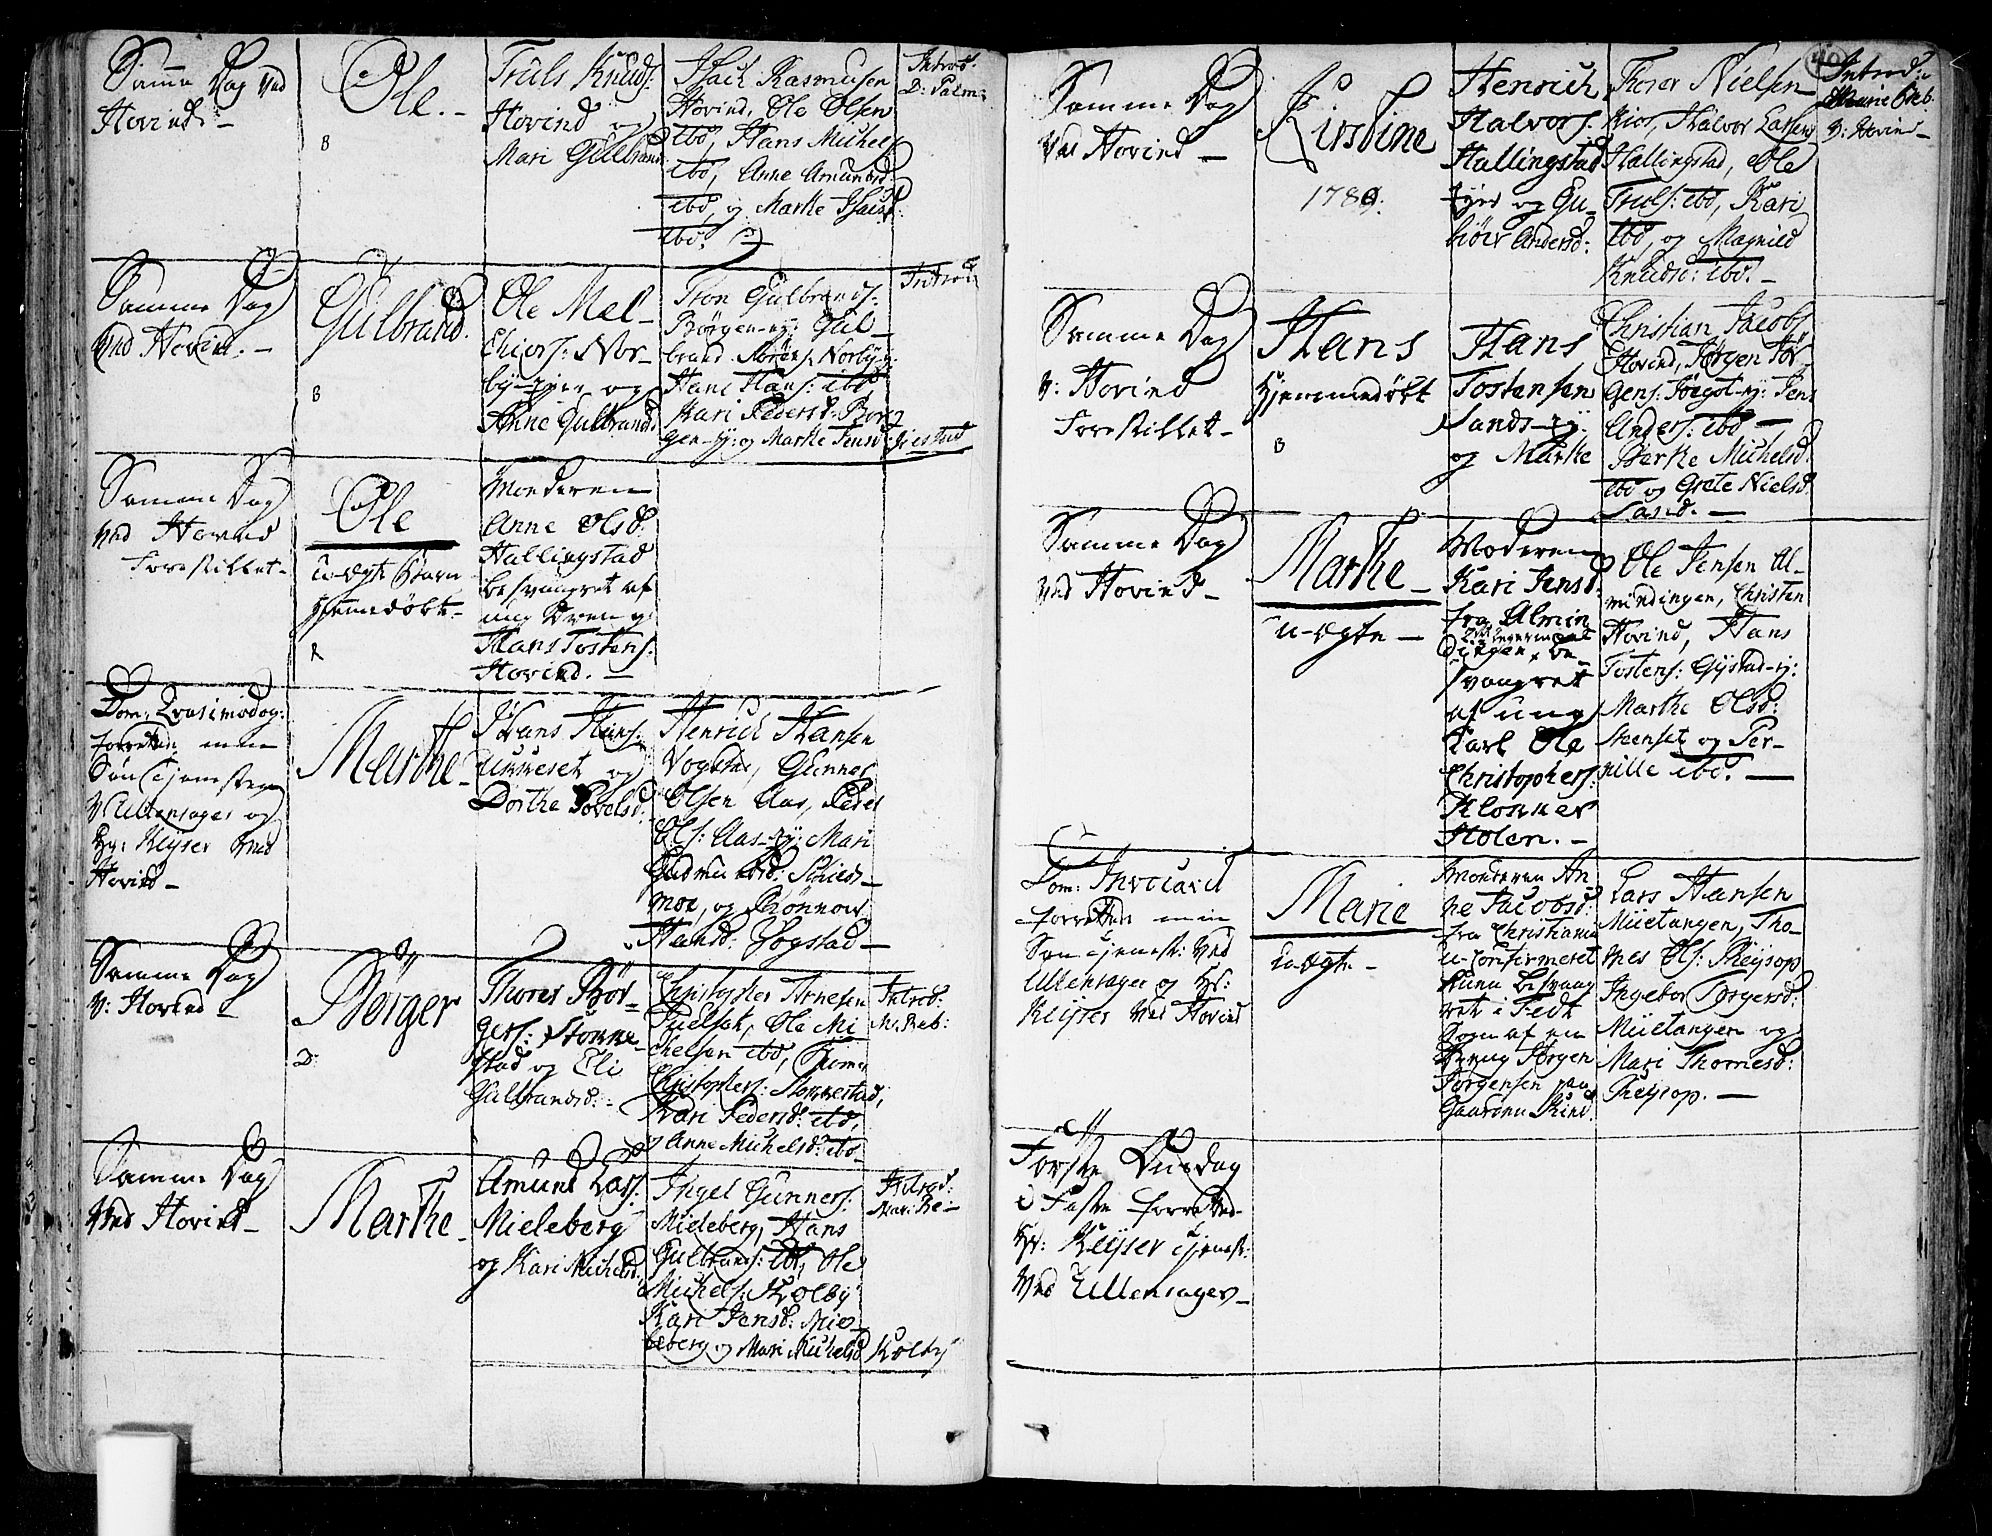 Samme Dag ved
Hovind. –
Ole. –
B
Truls Knuds:
Hovind og
Mari Gulbrands
Isach Rasmusen
Hovind, Ole Olsen
ibd, Hans Michel
ibd, Anne Amunds:
ibd, og Marthe Isachs:
ibd.
Introd:
D: Palm:
Samme Dag
ved Hovind. –
Gulbrand.
B
Ole Mel-
chiors: Nor-
by-Ejer og
Anne Gulbrands
Tron Gulbrands:
Børgen-ej: Gul-
brand Sørens: Norby-ej:
Hans Hans: ibd
Kari Peders: Bør-
gen-ej: og Marthe Jensd: Gjestad
Introd:
Samme Dag
ved Hovind
Forestillet –
Ole
u-ægte Barn
hjemmedøbt –
Moderen
Anne Olsd:
Hallingstad
besvangret af
ung Dreng
Hans Tostens:
Hovind. –
Dom: Qvasimodog:
forrettede min
Søn Tjenesten
v: Ullensager og
Hr: Keyser ved
Hovind –
Marthe –
Hans Hans:
og
Dorthe Povelsd:
Henrich Hansen
Vogstad, Gunner
Olsen Aas, Peder
Ols: Aas-ej: Mari
Gudmundsd:
moe, og Rønnow
Hansd: Vogstad –
Samme Dag
v: Hovind
Børger
D:
Thorer Bør-
gers: Stokke-
stad og Eli
Gulbrandsd: –
Christopher Arnesen
Ole Mi
chelsen ibd,
Christophers: Stokkestad,
Kari Pedersd: ibd,
og Anne Michelsd: ibd –
Introd:
M: Reb:
Samme Dag
ved Hovind –
Marthe –
Amund Lars:
Mieleberg
og Kari Michelsd:
Ingel Gunners:
Mieleberg, Hans
Gulbrands: ibd, Ole
Michels: Kolby
Kari Jensd: Mie-
leberg og Mari Michelsd: Kolby
Introd:
Mari Re: –
40
Samme Dag
ved Hovind –
Kirstine
1789.
Henrich
Halvors:
Hallingstad
Ejer og Gu-
biør Andersd:
Thorer Nielsen
Kior, Halvor Larsen
Hallingstad, Ole
Truls: ibd, Kari
ibd, og Magnild
Knudsd: ibd. –
Introd:
Marie Reb:
v: Hovind –
Samme Dag
v: Hovind
Forestillet –
Hans
hjemmedøbt
B
Hans
Tostensen
Sands-ej:
og Marthe
Christian Jacobs:
Hovind, Jørgen Jør-
gens: -ej: Jens
Anders: ibd –
Berthe Michelsd:
ibd og Grete Nielsd:
Sand. –
Samme Dag
ved Hovind –
Marthe –
u-ægte –
Moderen
Kari Jensd:
fra Almin
dingen, be-
svangret
af ung
Karl Ole
Christophers:
Klokker
Holen. –
Ole Jensen Al-
mindingen, Christen
Hovind, Hans
Tostens: Gystad-ej:
Marthe Olsd:
Steenset og Per-
nille ibd. –
Dom: Invocavit
forrettede min
Søn tjenest: ved
Ullensager og Hr:
Keyser ved Hovind
Marie
u-ægte –
Moderen An-
ne Jacobsd:
fra Christiania
u-confirmeret
besvang
ret i Fedt
Sogn af en
Dreng Jørgen
Jørgensen paa
Gaarden Kind
Lars Hansen
Mietangen, Tho-
mes Ols: Reysop
Ingebor Torgersd:
Mietangen og
Mari Thomesd:
Reysop. –
Første Onsdag
i Faste forrettede
Hr: Keyser tjenest:
ved Ullensager –